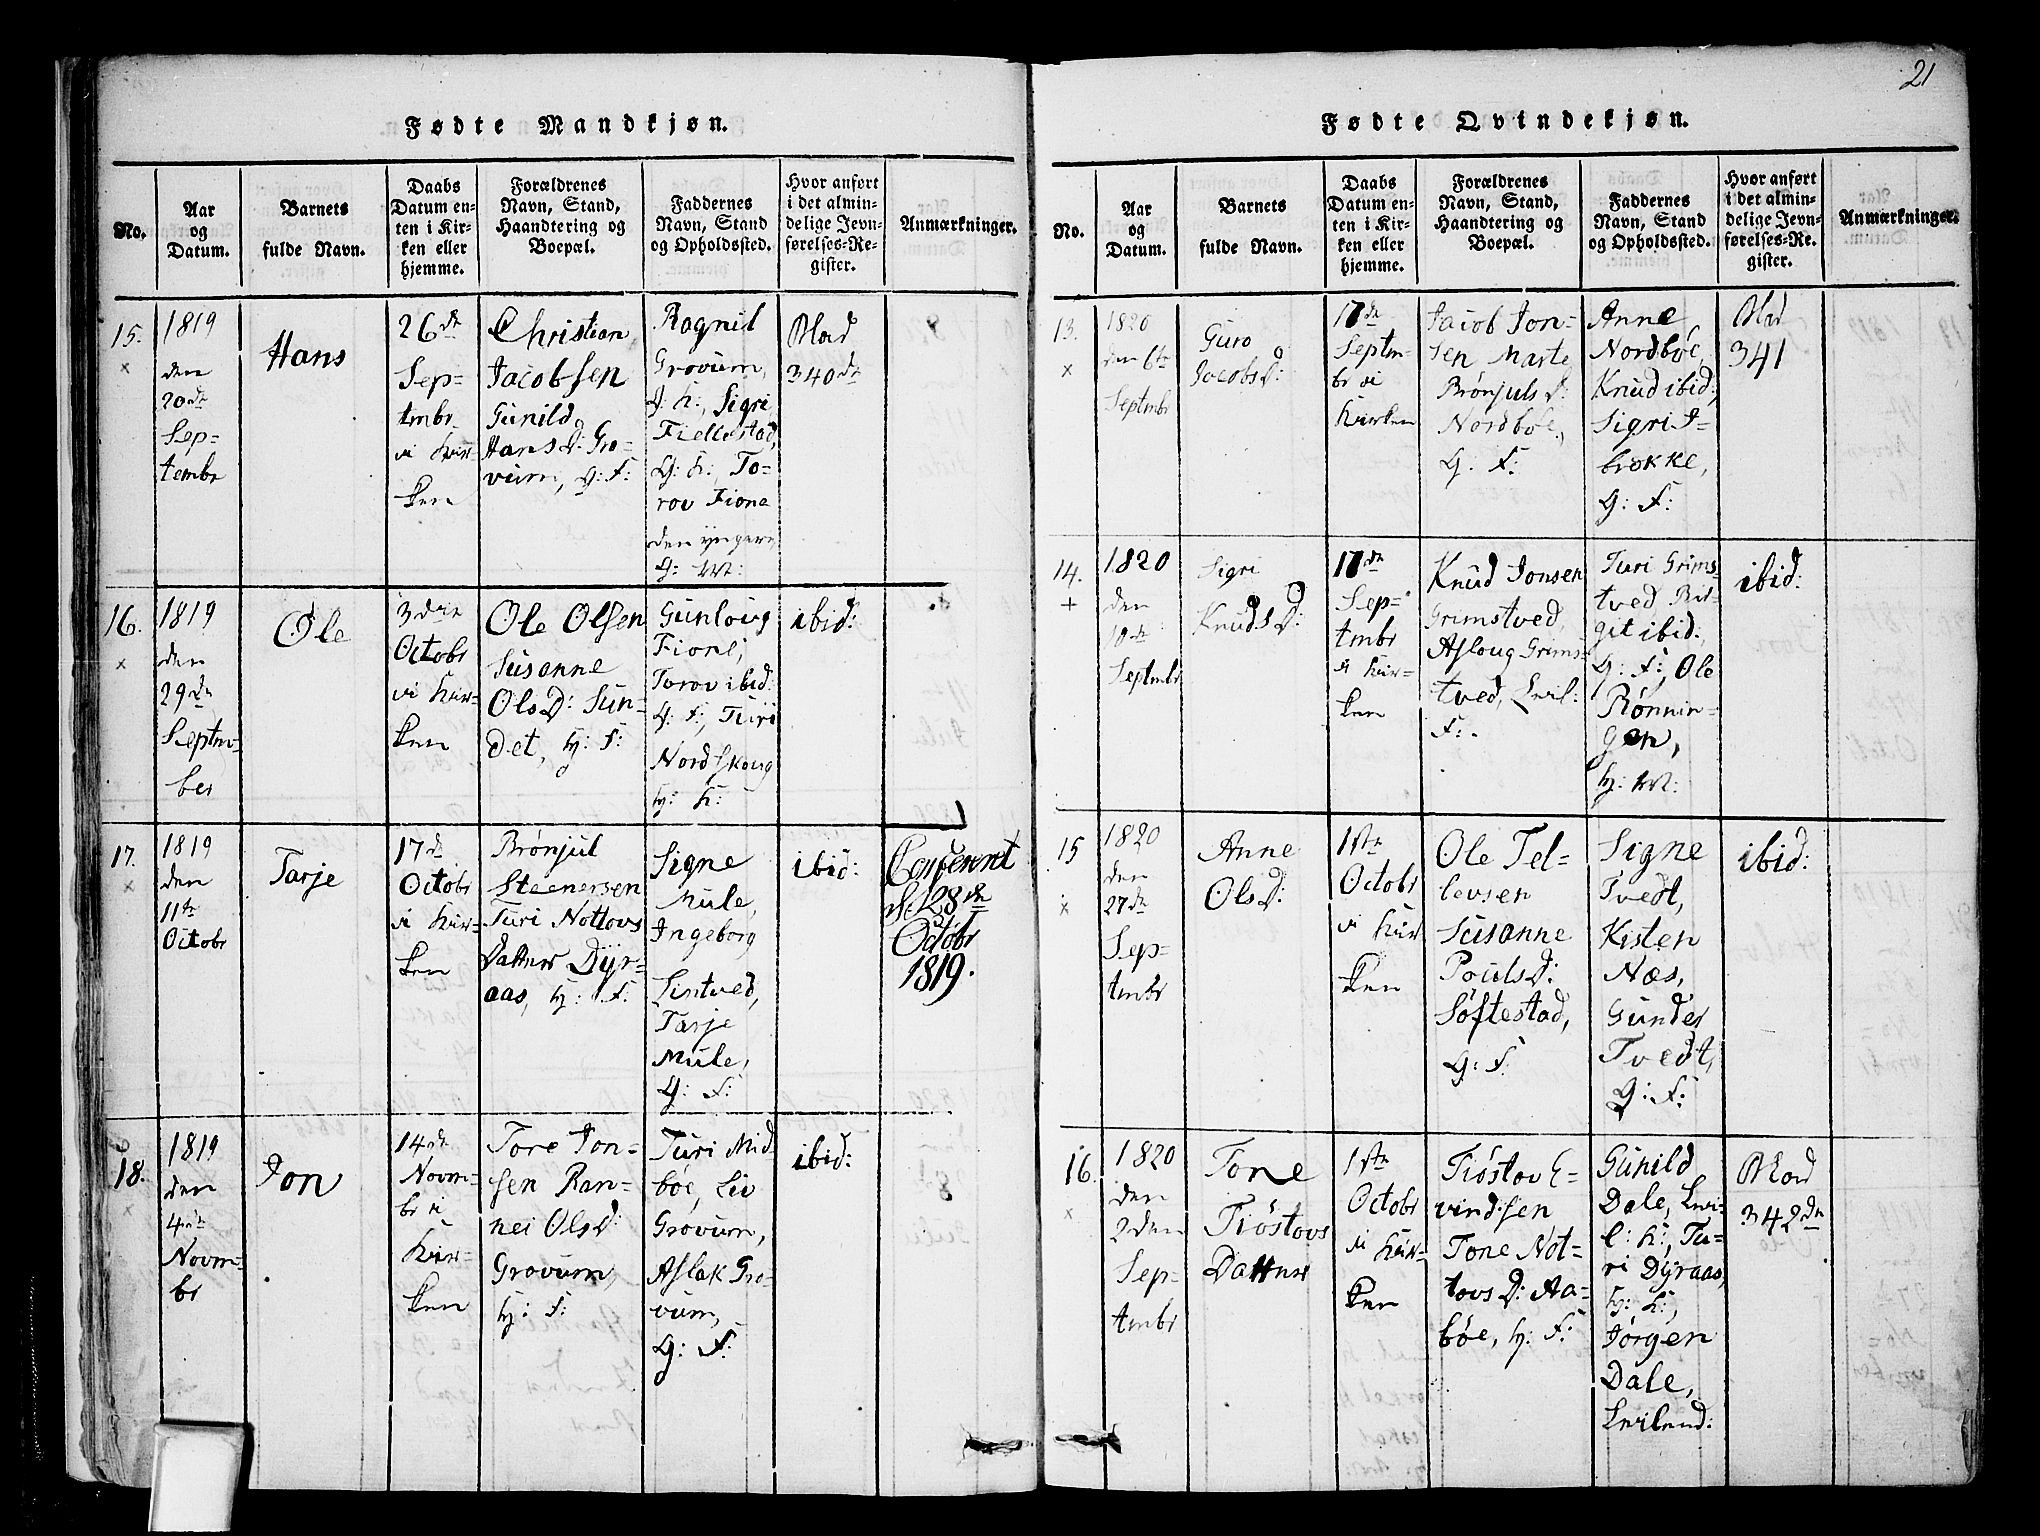 21
Fødte Mandkjøn.
No.
Aar
og
Datum.
Barnets
fulde Navn.
Daabs
Datum en-
ten i Kir-
ken eller
hjemme.
Forældrenes
Navn, Stand,
Haandtering og
Boepæl.
Faddernes
Navn, Stand
og Opholdssted.
Hvor anført
i det almin-
delige Jevn-
førelses-Re-
gister.
Anmærkninger.
15.
x
1819
den
20de
Sep-
tembr
Hans
26de
Sep-
tmbr
i Kir-
ken
Christian
Jacobsen
Gunild
Hans D: Gro-
vum, G: F:
Ragnil
Grovum,
G: K:, Sigri
Fiellestad,
G: K:, To-
rov Fione
den yngere,
G: M:
Blad
340de
16.
x
1819
den
29de
Septm-
ber
Ole
3die
Octobr
i Kir-
ken
Ole Olsen
Susanne
Ols D: Sun-
det, H: F:
Gunloug
Fione,
Torov ibid:
G: F:, Turi
Nordskoug
H: K:
ibid:
17.
x
1819
den
11te
Octobr
Tarje
17de
Octobr
i Kir-
ken
Brønjul
Steenersen
Turi Nottovs
Datter Dyr-
aas, H: F:
Signe
Mule,
Ingeborg
Sintved,
Tarje
Mule,
G: F:
ibid:
Conferert
d: 28de
Octobr
1819.
18.
x
1819
den
4de
Novm-
br
Jon
14de
Novm-
br i
Kir-
ken
Tore Jon-
sen Ran-
nei Ols D:
Grovum,
H: F:
Turi Mid-
bøe, Liv
Grovum,
Aslak Gro-
vum,
G: F:
ibid:
Fødte Qvindekjøn.
No.
Aar
og
Datum.
Barnets
fulde Navn.
Daabs
Datum en-
ten i Kir-
ken eller
hjemme.
Forældrenes
Navn, Stand,
Haandtering og
Boepæl.
Faddernes
Navn, Stand
og Opholdssted.
Hvor anført
i det almin-
delige Jevn-
førelses-Re-
gister.
Anmærkninger.
13.
x
1820
den 6te
Septmbr
Guro
Jacobs D:
17de
Septm-
br i
Kirken
Jacob Jon-
sen Marte
Brønjuls D:
Nordbøe,
G: F:
Anne
Nordbøe,
Knud ibid:,
Sigri S-
brokke,
G: F:
Blad
341
14.
+
1820
den
10de
Septmbr
Sigri
Knuds D:
17de
Sep-
tmbr
i Kir-
ken
Knud Jonsen
Grimstved,
Asloug Grims-
tved, Leil:
F:
Turi Grims-
tved, Bir-
git ibid:,
G: F:, Ole
Rønnin-
gen,
H: M:
ibid:
15
x
1820
den
27de
Sep-
tmbr
Anne
Ols D:
1ste
Octobr
i Kir-
ken
Ole Tel-
levsen
Susanne
Pouls D:
Søftestad,
G: F:
Signe
Tvedt,
Kisten
Næs,
Gunder
Tvedt,
G: F:
ibid:
16.
x
1820
den
2den
Sep-
tmbr
Tone
Tiøstovs
Datter
1ste
Octobr
i Kir-
ken
Tiøstov E-
vindsen
Tone Not-
tovs D: Aa-
bøe, H: F:
Gunild
Dale, Lei-
l: K:, Tu-
ri Dyraas,
H: K:,
Jørgen
Dale,
Leilend:
Blad
342de